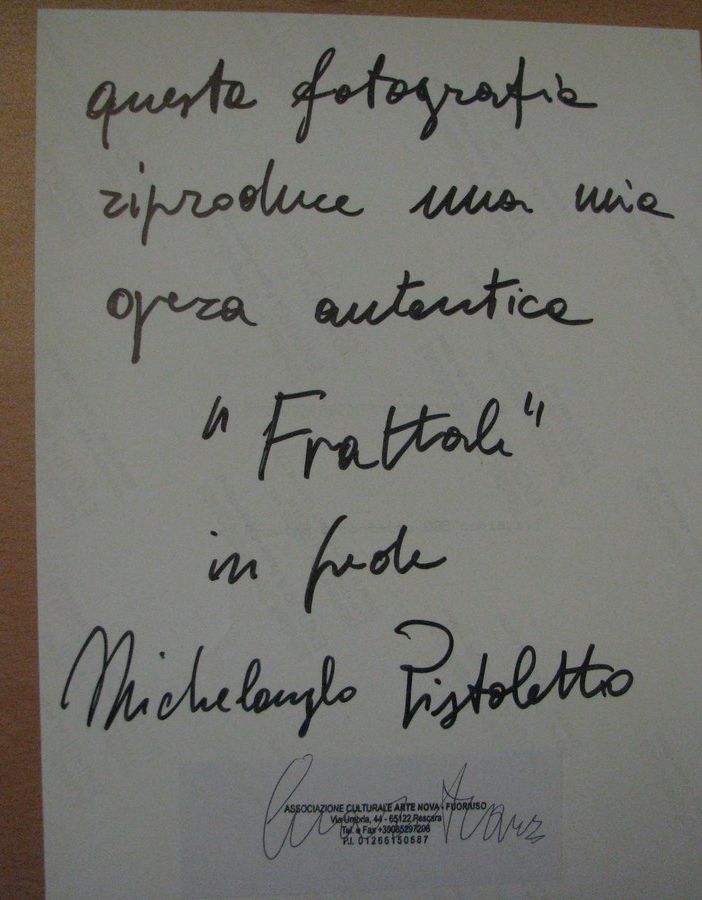 questa fotografia
riproduce una mia
opera autentica
"Frattali"
in fede
Michelangelo Pistoletto
ASSOCIAZIONE CULTURALE ARTE NOVA - FUORIUSO
Via Umbria, 44 - 65122 Pescara
Tel. e Fax +39085297206
P.I. 01266150687